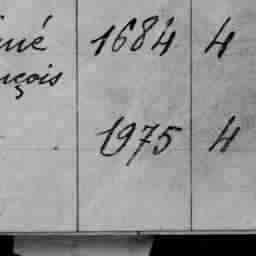 né 1684 4
nçois
1975 4